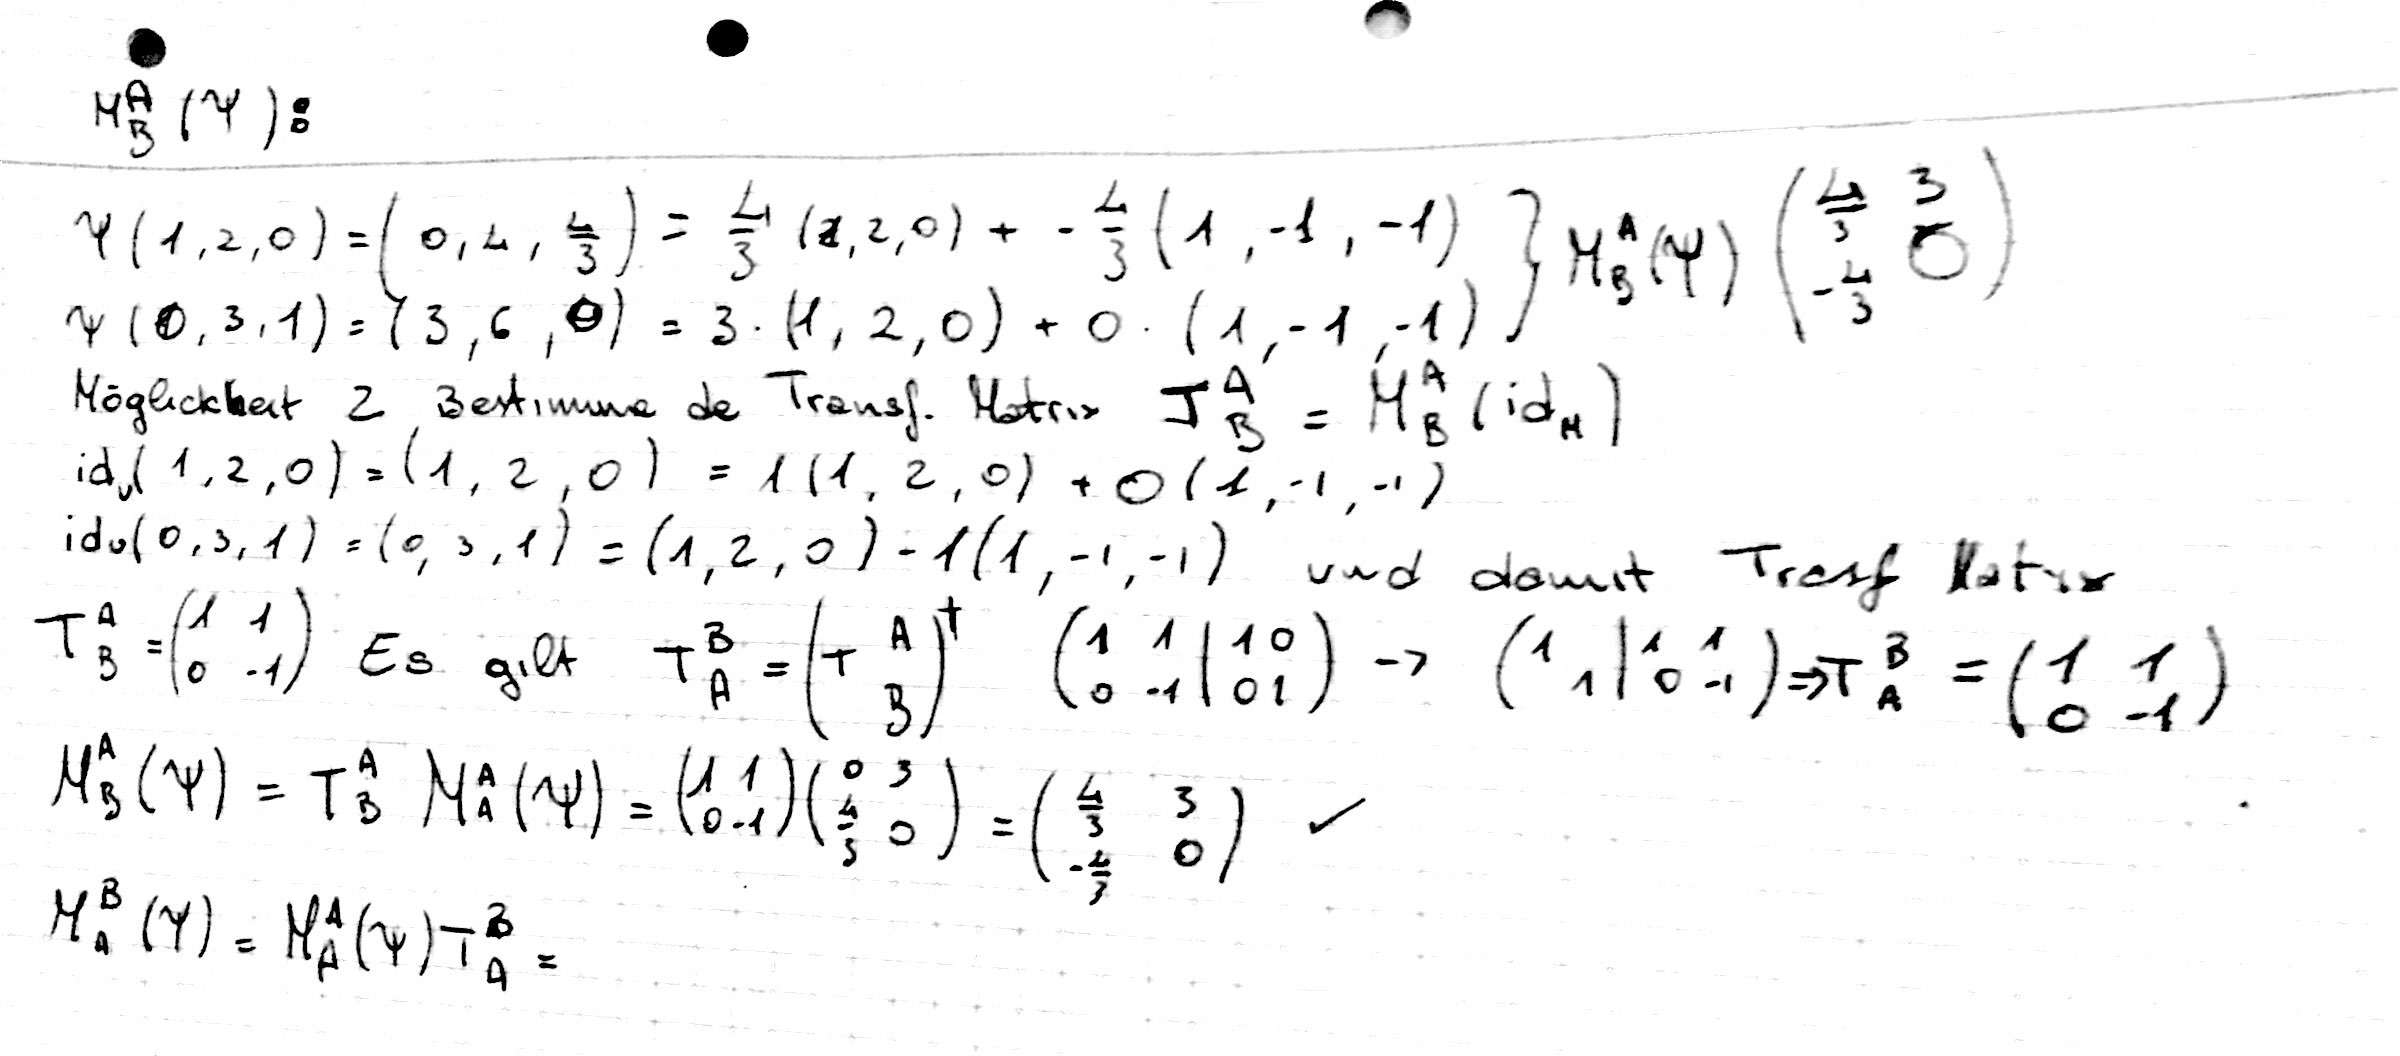 M^A_B (Ψ):
Ψ(1,2,0) = (0, 4, 4/3) = 4/3 (1,2,0) + - 4/3 (1, -1, -1) } M^A_B (Ψ) ( 4/3 3 ; - 4/3 0 )
Ψ(0,3,1) = (3, 6, 0) = 3 · (1, 2, 0) + 0 · (1, -1, -1)
Möglickheit 2 Bestimme de Transf. Matrix T^A_B = M^A_B (id_M)
id_v(1,2,0) = (1, 2, 0) = 1(1, 2, 0) + 0(1, -1, -1)
id_v(0,3,1) = (0, 3, 1) = (1, 2, 0) - 1(1, -1, -1) und damit Transf Matrix
T^A_B = ( 1 1 ; 0 -1 ) Es gilt T^B_A = (T^A_B)^† ( 1 1 | 1 0 ; 0 -1 | 0 1 ) -> ( 1 | 1 1 ; 1 | 0 -1 ) ⇒ T^B_A = ( 1 1 ; 0 -1 )
M^A_B (Ψ) = T^A_B M^A_A (Ψ) = ( 1 1 ; 0 -1 ) ( 0 3 ; 4/3 0 ) = ( 4/3 3 ; - 4/3 0 ) ✓
M^B_A (Ψ) = M^A_A (Ψ) T^B_A =